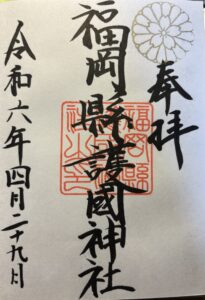 奉拝
福岡縣護國神社
令和六年四月二十九日